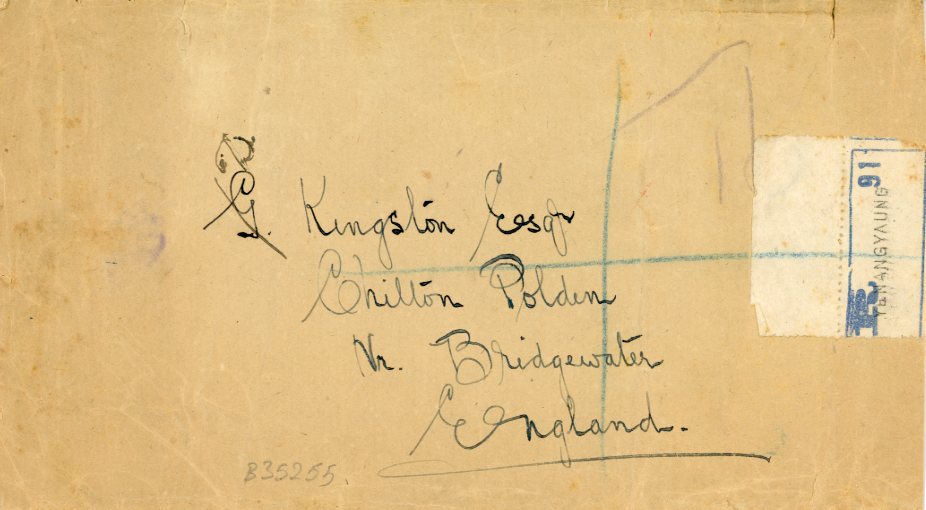 G. Kingston Esqr
Chilton Polden
Nr. Bridgewater
England.
B35255.
91
YENANGYAUNG